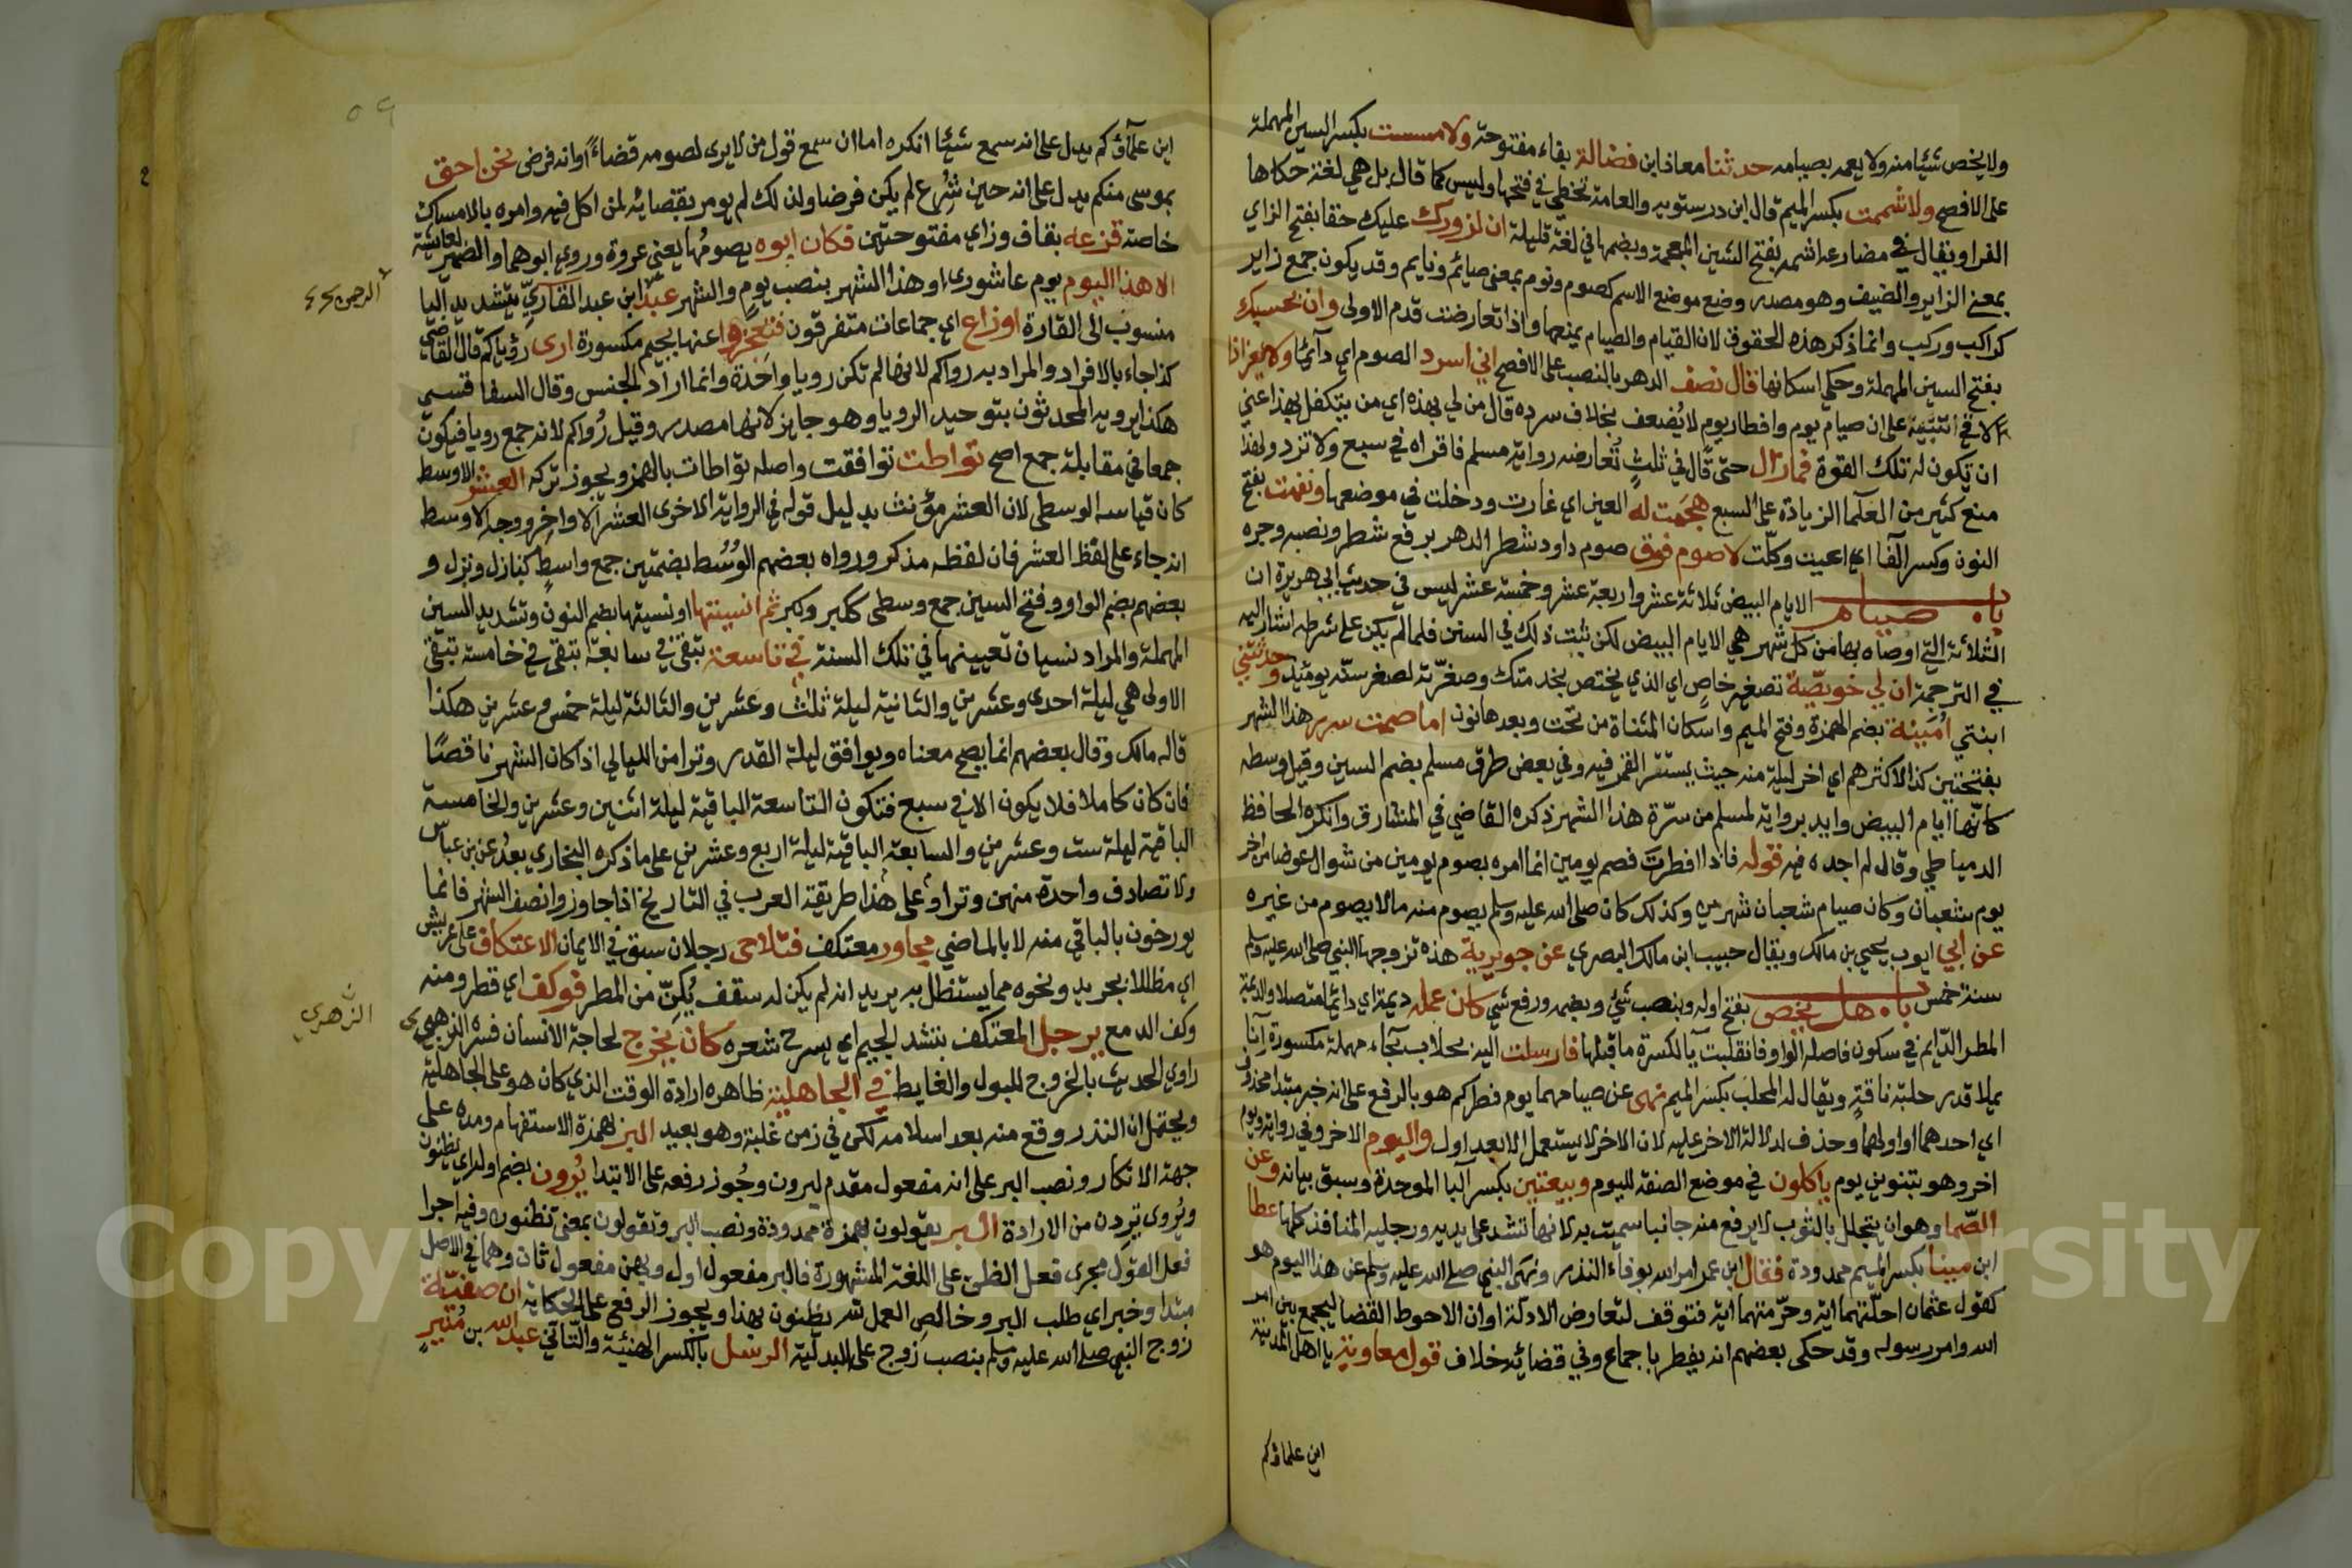 ولا يخص شيئا منه ولا يعمه بصيامه حدثنا معاذ ابن فضالة بفاء مفتوحة ولا مسست بكسر السين المهملة
على الافصح ولا شممت بكسر الميم قال ابن درستويه والعامة تخطي في فتحها وليس كما قال بل هي لغة حكاها
الفرا ويقال في مضارعه اشمه بفتح الشين المعجمة وبضمها في لغة قليلة ان لزورك عليك حقا بفتح الزاي
بمعنى الزاير والضيف وهو مصدر وضع موضع الاسم كصوم ونوم بمعنى صائم ونايم وقد يكون جمع زاير
كراكب وركب وانما ذكر هذه الحقوق لان القيام والصيام يمنعها واذا تعارضت قدم الاولى وان بحسبك
بفتح السين المهملة وحكي اسكانها قال نصف الدهر بالنصب على الافصح اني اسرد الصوم اي دائما ولا يفر اذا
لاقى تنبيه على ان صيام يوم وافطار يوم لا يضعف بخلاف سرده قال من لي بهذه اي من يتكفل لي بهذا عني
ان تكون له تلك القوة فما زال حتى قال في ثلث تعارضه رواية مسلم فاقراه في سبع ولا تزد ولهذا
منع كثير من العلما الزيادة على السبع هجمت له العين اي غارت ودخلت في موضعها ونفهت بفتح
النون وكسر الفا اي اعيت وكلت لا صوم فوق صوم داود شطر الدهر برفع شطر ونصبه وجره
باب صيام الايام البيض ثلاثة عشر واربعة عشر وخمسة عشر ليس في حديث ابي هريرة ان
الثلاثة التي اوصاه بها من كل شهر هي الايام البيض لكن ثبت ذلك في السنن فلما لم يكن على شرطه اشار اليه
في الترجمة ان لي خويصة تصغير خاص اي الذي يختص بخدمتك وصغرته لصغر سنه يومئذ وحدثتني
ابنتي امينة بضم الهمزة وفتح الميم واسكان المثناة من تحت وبعدها نون اما صمت سرر هذا الشهر
بفتحتين كذا لاكثرهم اي اخر ليلة منه حيث يستتر القمر فيه وفي بعض طرق مسلم بضم السين وقيل وسطه
كانها ايام البيض وايد برواية لمسلم من سرة هذا الشهر ذكره القاضي في المشارق وانكره الحافظ
الدمياطي وقال لم اجده فيه قوله فاذا افطرت فصم يومين انما امره بصوم يومين من شوال عوضا من اخر
يوم شعبان وكان صيام شعبان شهرين وكذلك كان صلى الله عليه وسلم يصوم منه ما لا يصوم من غيره
عن ابي ايوب يحيى بن مالك ويقال حبيب ابن مالك البصري عن جويرية هذه تزوجها النبي صلى الله عليه وسلم
سنة خمس باب هل يخص بفتح اوله وبنصب شي وبضمه ورفع شي كان عمله ديمة اي دائما متصلا والديمة
المطر الدايم في سكون فاصله الواو فانقلبت يا لكسرة ما قبلها فارسلت اليه بحلاب بحاء مهملة مكسورة انا
يملا قدر حلبة ناقة ويقال له المحلب بكسر الميم نهى عن صيامهما يوم فطركم هو بالرفع على انه خبر مبتدا محذوف
اي احدهما او اولهما وحذف لدلالة الاخر عليه لان الاخر لا يستعمل الا بعد اول واليوم الاخر وفي رواية ويوم
اخر وهو بتنوين يوم ياكلون في موضع الصفة لليوم وبيعتين بكسر البا الموحدة وسبق بيانه وعن
الصما وهو ان يتجلل بالثوب لا يرفع منه جانبا سميت به لانها تشد على يديه ورجليه المنافذ كلها عطا
ابن مينا بكسر الميم ممدودة فقال ابن عمر امر الله بوفاء النذر ونهى النبي صلى الله عليه وسلم عن هذا اليوم هو
كقول عثمان احلتهما اية وحرمتهما اية فتوقف لتعارض الادلة او ان الاحوط القضا ليجمع بين امر
الله وامر رسوله وقد حكى بعضهم انه يفطر باجماع وفي قضائه خلاف قول معاوية يا اهل المدينة
اين علماؤكم
اين علماؤكم يدل على انه سمع شيئا انكره اما ان سمع قول من لا يرى لصومه قضاءً او انه فرض نحن احق
بموسى منكم يدل على انه حين شُرع لم يكن فرضا ولذلك لم يومر بقضائه لمن اكل فيه وامره بالامساك
خاصة قزعه بقاف وزاي مفتوحتين فكان ابوه يصومها يعني عروة وروي ابوهما والضمير لعائشة
الا هذا اليوم يوم عاشورى وهذا الشهر بنصب يوم والشهر عبد ابن عبد القاري بتشديد اليا
الرحمن
منسوب الى القارة اوزاع اي جماعات متفرقون فتعجزوا عنها بجيم مكسورة ارى رؤياكم قال القاضي
كذا جاء بالافراد والمراد به رواكم لانها لم تكن رويا واحدة وانما اراد الجنس وقال السفاقسي
هكذا يرويه المحدثون بتوحيد الرويا وهو جايز لانها مصدر وقيل رُواكم لانه جمع رويا فيكون
جمعا في مقابلة جمع اصح تواطت توافقت واصله تواطات بالهمز ويجوز تركه العشر الاوسط
كان قياسه الوسطى لان العشر مؤنث بدليل قوله في الرواية الاخرى العشر الاواخر ووجه الاوسط
انه جاء على لفظ العشر فان لفظه مذكر ورواه بعضهم الوُسُط بضمتين جمع واسط كنازل ونزل و
بعضهم بضم الواو وفتح السين جمع وسطى ككبر وكبرى ثم انسيتها او نسيتها بضم النون وتشديد السين
المهملة والمراد نسيان تعيينها في تلك السنة في تاسعة تبقى في سابعة تبقى في خامسة تبقى
الاولى هي ليلة احدى وعشرين والثانية ليلة ثلث وعشرين والثالثة ليلة خمس وعشرين هكذا
قاله مالك وقال بعضهم انما يصح معناه ويوافق ليلة القدر وترا من الليالي اذا كان الشهر ناقصًا
فان كان كاملا فلا يكون الا في سبع فتكون التاسعة الباقية ليلة اثنين وعشرين والخامسة
الباقية ليلة ست وعشرين والسابعة الباقية ليلة اربع وعشرين على ما ذكره البخاري بعدُ عن بن عباس
ولا تصادف واحدة منهن وترا وعلى هذا طريقة العرب في التاريخ اذا جاوزوا نصف الشهر فانما
يورخون بالباقي منه لا بالماضي مجاور معتكف فتلاحى رجلان سبق في الايمان الاعتكاف على عريش
اي مظللا بجريد ونحوه مما يستظل به يريد انه لم يكن له سقف يُكِنّ من المطر فوكف اي قطر ومنه
وكف الدمع يرجل المعتكف بتشديد الجيم اي يسرح شعره كان يخرج لحاجة الانسان فسره الزهري
الزهري
راوي الحديث بالخروج للبول والغايط في الجاهلية ظاهره ارادة الوقت الذي كان هو على الجاهلية
ويحتمل ان النذر وقع منه بعد اسلامه لكن في زمن غلبة وهو بعيد البر بهمزة الاستفهام ومده على
جهة الانكار ونصب البر على انه مفعول مقدم ليرون وجُوز رفعه على الابتدا يُرون بضم اوله اي يظنون
ويُروى تُرِدن من الارادة البر يقولون بهمزة ممدودة ونصب البر وتقولون بمعنى تظنون وفيه اجرا
فعل القول مجرى فعل الظن على اللغة المشهورة فالبر مفعول اول وبهن مفعول ثان وهما في الاصل
مبتدا وخبر اي طلب البر وخالص العمل لله يظنون بهذا ويجوز الرفع على الحكاية ان صفيّة
زوج النبي صلى الله عليه وسلم بنصب زوج على البدلية الرسل بالكسر الهنيئة والتأني عبد الله بن مُنير
Copyright © King Saud University